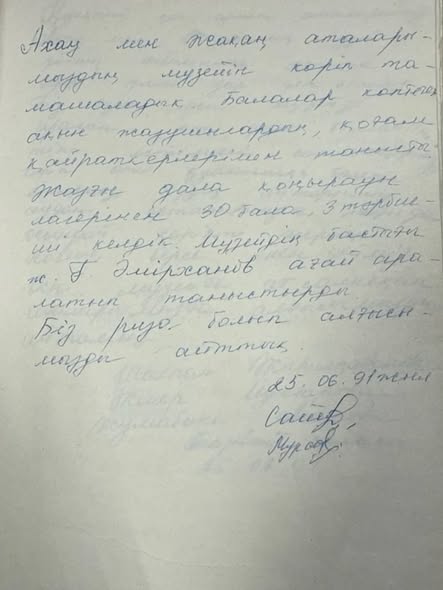 Ахаң мен Жақаң аталары-
мыздың музейін көріп та-
машаладық. Балалар көптеген
ақын жазушылардың, қоғам
қайраткерлерімен танысты.
Жазғы дала қоңырауы
лагерінен 30 бала, 3 тәрбие-
ші келдік. Музейдің бастығы
ж. Ғ Әмірханов ағай ара-
латып таныстырды
Біз риза болып алғысы-
мызды айттық.
25. 06. 91 жыл